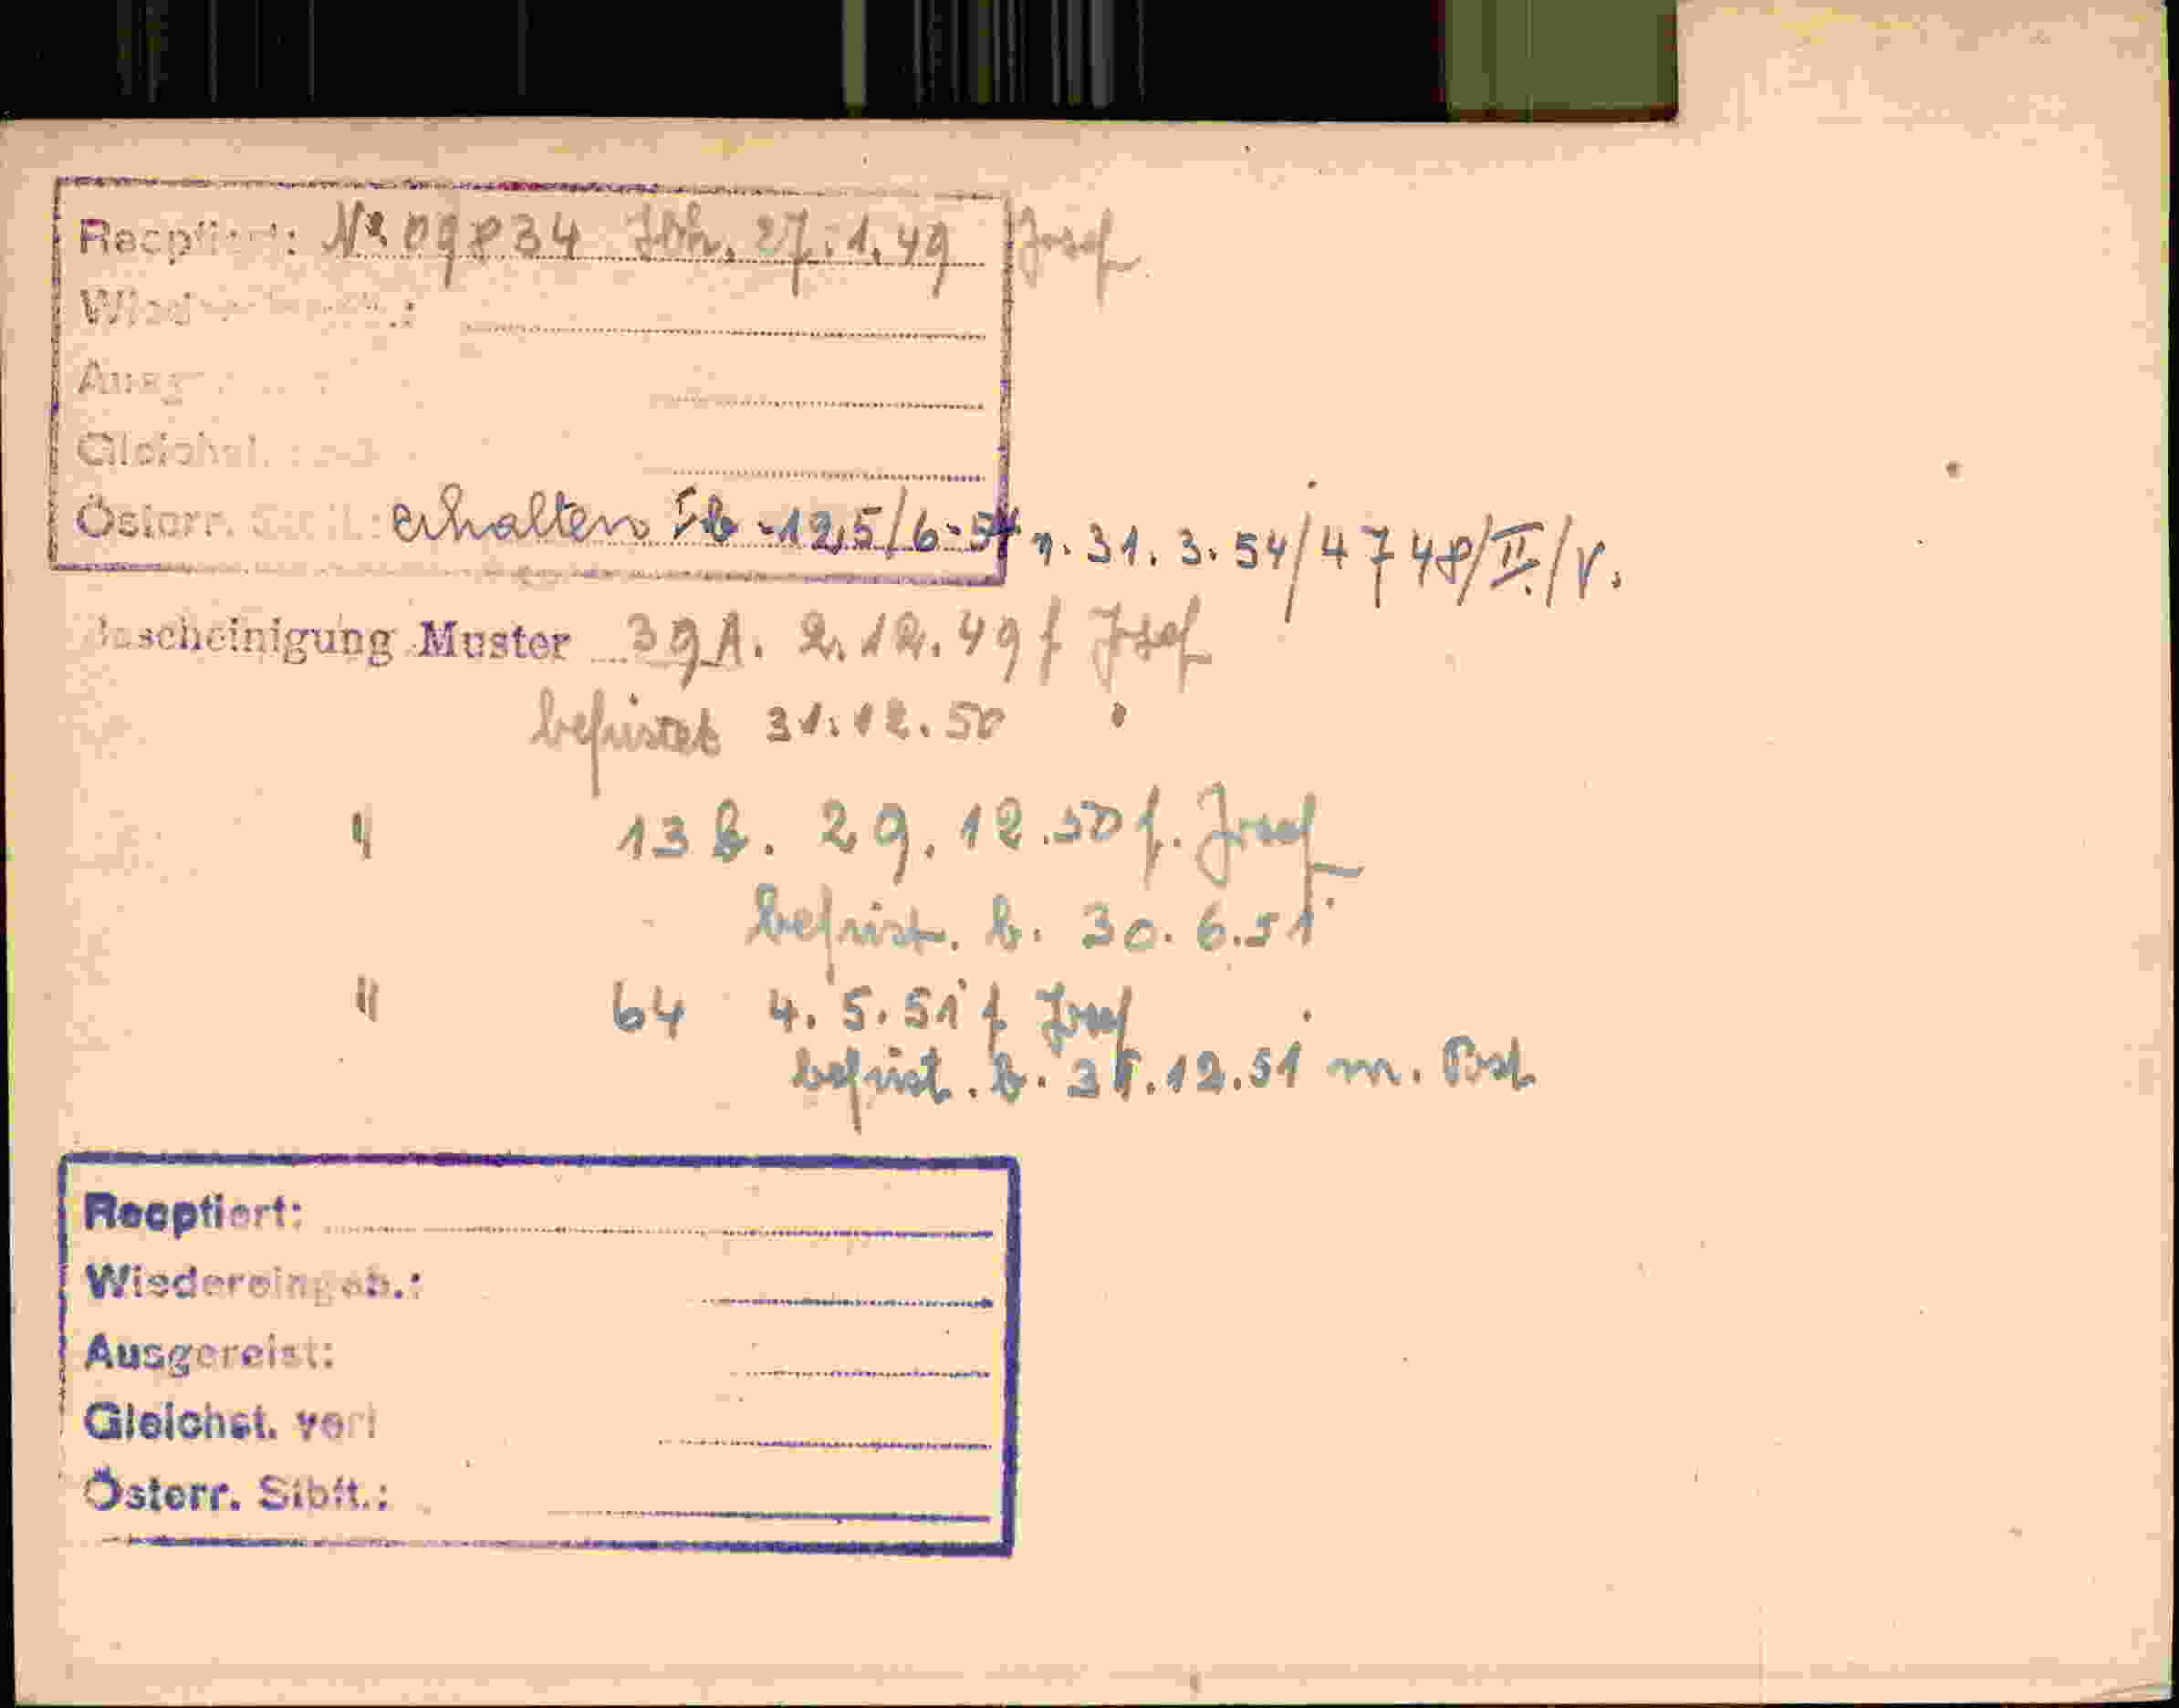 Recptiert: № 09834 Joh. 27.1.49 Josef
Wiedereingeb.:
Ausgereist:
Gleichst. verl
Österr. Stbft.: erhalten Ib-12,5/6-54 v. 31.3.54/4748/II./V.
Bescheinigung Muster 39A. 2.12.49 f Josef
befristet 31.12.50
" 13 b. 29.12.50 f. Josef
befrist. b. 30.6.51
" 64 4.5.51 f Josef
befrist. b. 31.12.51 m. Post
Recptiert:
Wiedereingeb.:
Ausgereist:
Gleichst. verl
Österr. Stbft.: